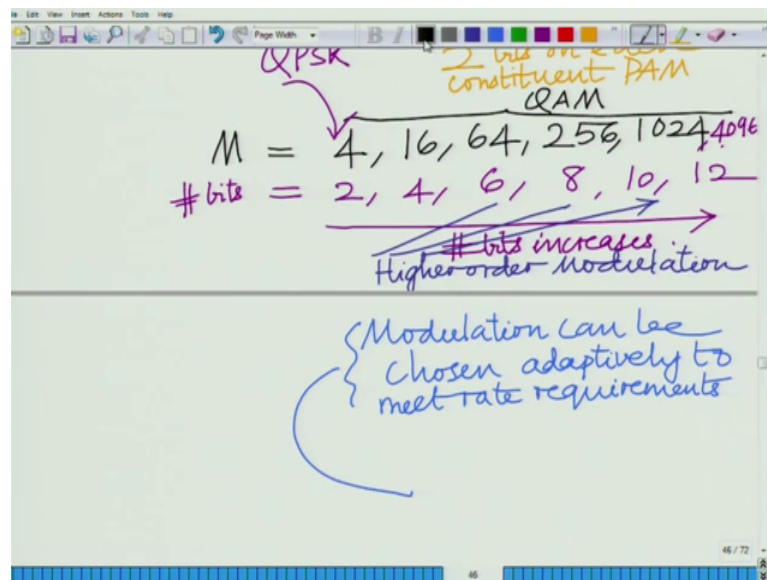 Edit View Insert Actions Tools Help
Page Width
B I
QPSK
2 bits on
constituent PAM
QAM
M = 4, 16, 64, 256, 1024, 4096
# bits = 2, 4, 6, 8, 10, 12
# bits increases.
Higher order Modulation
Modulation can be
chosen adaptively to
meet rate requirements
46 / 72
46